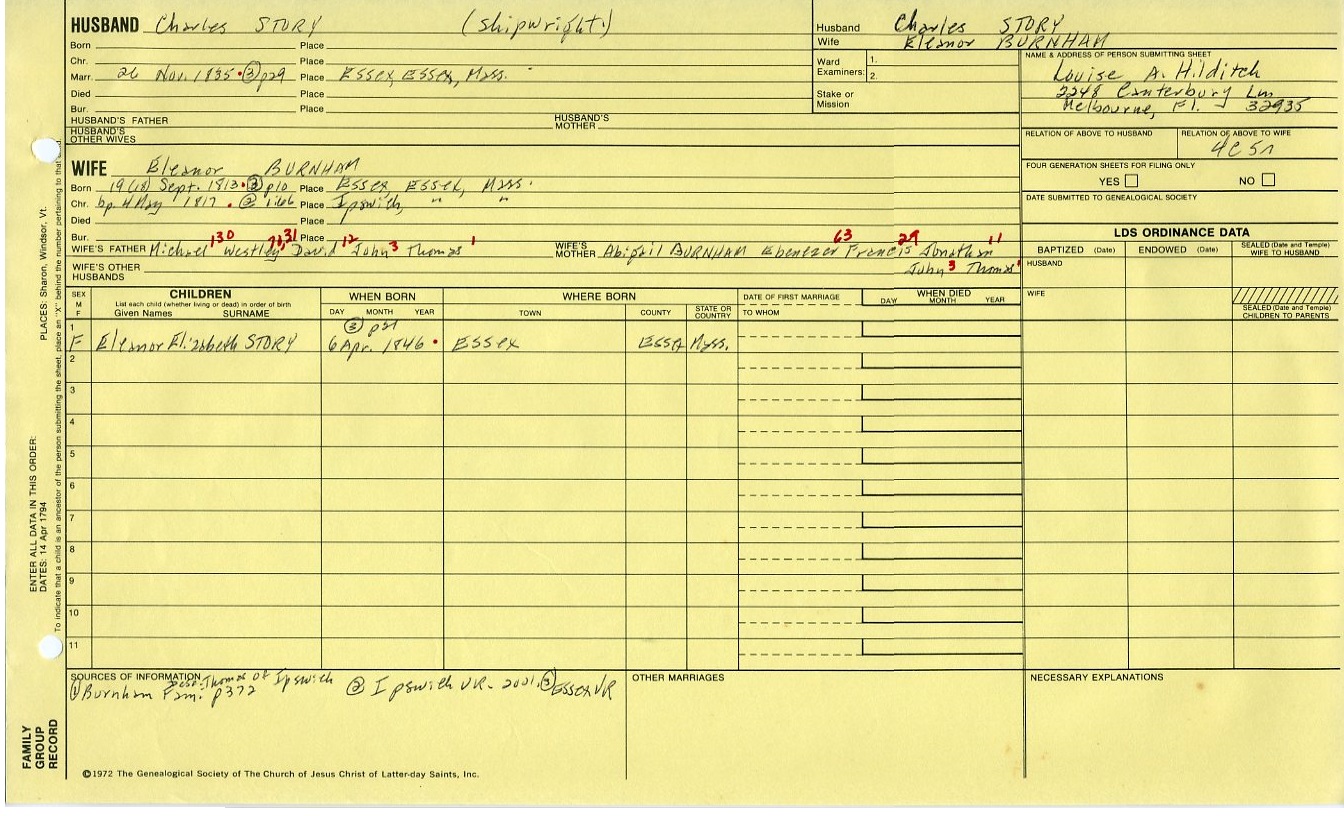 HUSBAND Charles STORY (shipwright)
Born Place
Chr. Place
Marr. 26 Nov. 1835 • ③ p29 Place Essex, Essex, Mass.
Died Place
Bur. Place
HUSBAND'S FATHER HUSBAND'S MOTHER
HUSBAND'S OTHER WIVES
Husband Charles STORY
Wife Eleanor BURNHAM
Ward Examiners: 1.
2.
Stake or Mission
NAME & ADDRESS OF PERSON SUBMITTING SHEET
Louise A. Hilditch
2248 Canterbury Ln
Melbourne, Fl. 32935
RELATION OF ABOVE TO HUSBAND RELATION OF ABOVE TO WIFE
4C 5R
FOUR GENERATION SHEETS FOR FILING ONLY
YES NO
DATE SUBMITTED TO GENEALOGICAL SOCIETY
WIFE Eleanor BURNHAM
Born 19 (18) Sept. 1813 • ③ p10 Place Essex Essex, Mass.
Chr. bp. 4 May 1817 . ② Place Ipswich, " "
Died Place
Bur. Place
130 70,31 12 3 1
WIFE'S FATHER Michael Westley David John Thomas
63 29 11
WIFE'S MOTHER Abigail BURNHAM Ebenezer Francis Jonathan
John 3 Thomas 1
WIFE'S OTHER HUSBANDS
LDS ORDINANCE DATA
BAPTIZED (Date) ENDOWED (Date) SEALED (Date and Temple) WIFE TO HUSBAND
HUSBAND
WIFE
SEALED (Date and Temple) CHILDREN TO PARENTS
SEX M F
CHILDREN
List each child (whether living or dead) in order of birth
Given Names SURNAME
WHEN BORN
DAY MONTH YEAR
WHERE BORN
TOWN COUNTY STATE OR COUNTRY
DATE OF FIRST MARRIAGE
TO WHOM
WHEN DIED
DAY MONTH YEAR
1 ③ p21
F Eleanor Elizabeth STORY 6 Apr. 1846 • Essex Essx Mass.
2
3
4
5
6
7
8
9
10
11
SOURCES OF INFORMATION
Desc. Thomas of Ipswich
① Burnham Fam. p372 ② Ipswich VR- 2001, ③ Essex VR
OTHER MARRIAGES
NECESSARY EXPLANATIONS
©1972 The Genealogical Society of The Church of Jesus Christ of Latter-day Saints, Inc.
FAMILY GROUP RECORD
ENTER ALL DATA IN THIS ORDER:
DATES: 14 Apr 1794 PLACES: Sharon, Windsor, Vt.
To indicate that a child is an ancestor of the person submitting the sheet, place an "X" behind the number pertaining to that child.